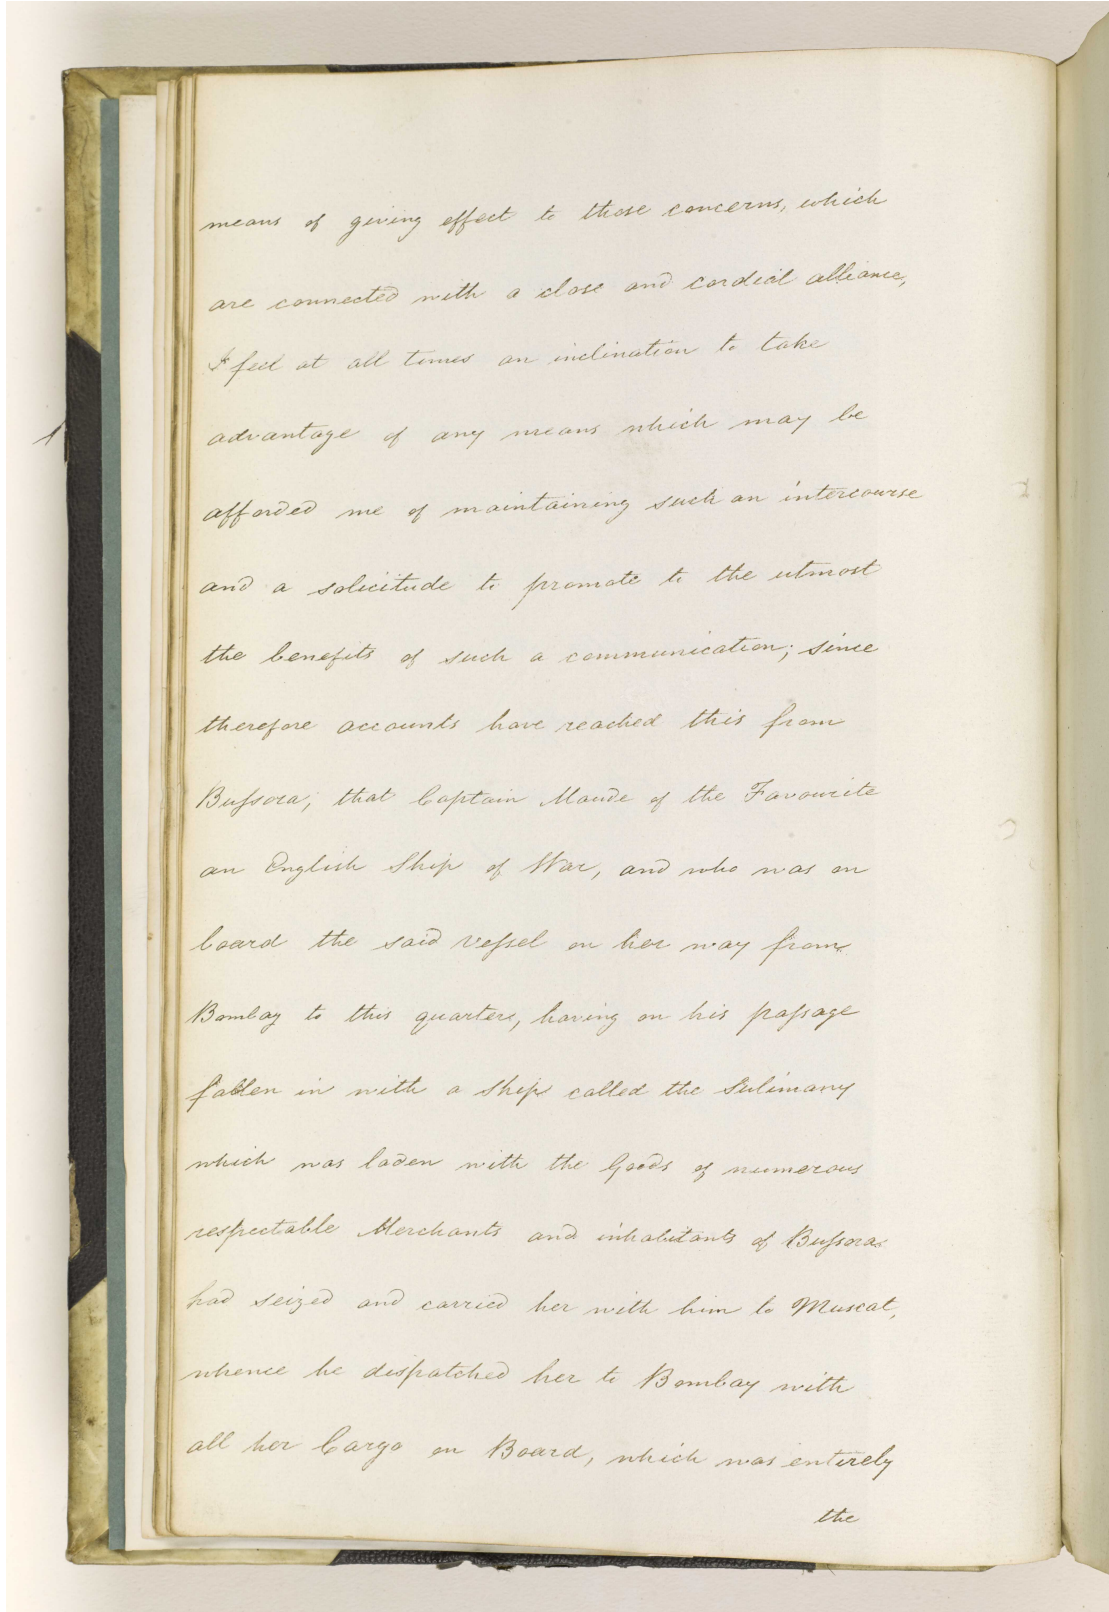 means of giving effect to those concerns, which
are connected with a close and cordial alliance,
I feel at all times an inclination to take
advantage of any means which may be
afforded me of maintaining such an intercourse
and a solicitude to promote to the utmost
the benefits of such a communication; since
therefore accounts have reached this from
Bussora; that Captain Maude of the Favourite
an English Ship of War, and who was on
board the said vessel on her way from
Bombay to this quarters, having on his passage
fallen in with a Ship called the Sulimany
which was laden with the Goods of numerous
respectable Merchants and inhabitants of Bussora
had seized and carried her with him to Muscat,
whence he dispatched her to Bombay with
all her Cargo on Board, which was entirely
the